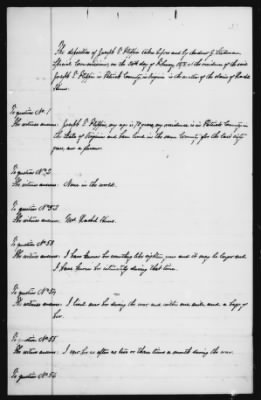 The deposition of Joseph P. taken before me by Andrew J.
Special Commissioner, on the day of February 1878 at the residence of the said
Joseph P. in Patrick County in Virginia in the matter of the claim of Rachel
To question No. 1
The witness answers Joseph my age is 70 years, my residence is in Patrick County in
the State of Virginia and have lived in the same County for the last
years, am a farmer.
To question No. 2
The witness answers None in the world.
To question No.
The witness answers Mrs. Rachel
To question No. 53
The witness answers I have known her something like eighteen years and it may be longer and
I have known her intimately during that time.
To question No. 54
The witness answers I lived near her during the war and within one mile and a half of
her.
To question No. 55
The witness answers I saw her as often as two or three times a month during the war.
To question No. 56